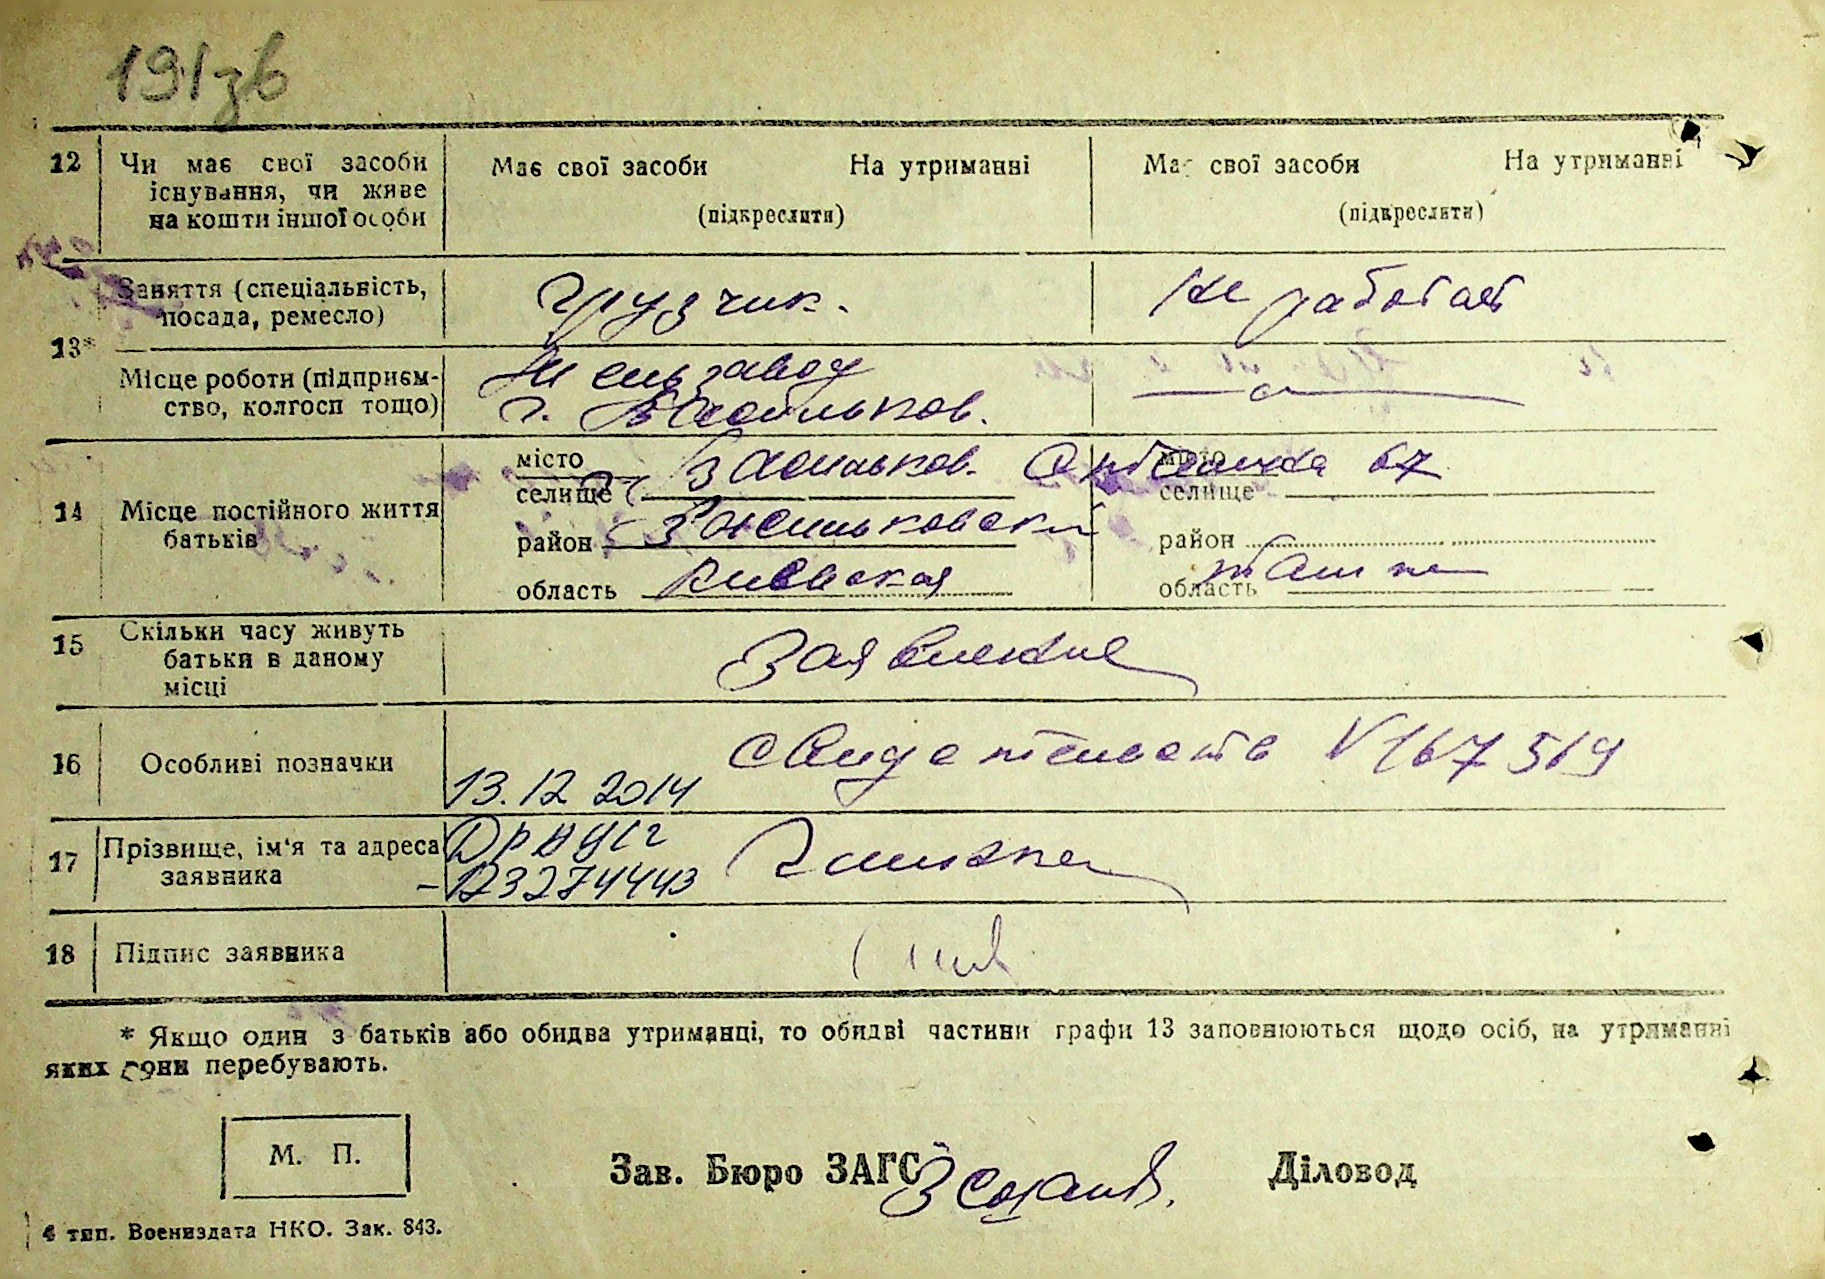 191зв
12 Чи має свої засоби існування, чи живе на кошти іншої особи
Має свої засоби На утриманні
(підкреслити)
Має свої засоби На утриманні
(підкреслити)
13*
Заняття (спеціальність, посада, ремесло)
грузчик.
Не работает
Місце роботи (підприєм-ство, колгосп тощо)
завод
г. Васильков.
14 Місце постійного життя батьків
місто
селище
г. Васильков. 67
район Васильковский
область Киевская
місто
селище
район
область
15 Скільки часу живуть батьки в даному місці
Заявление
16 Особливі позначки
13.12 2014
свидетельство V 167519
17 Прізвище, ім'я та адреса заявника
ДРАЦСГ
-123274443
18 Підпис заявника
* Якщо один з батьків або обидва утриманці, то обидві частини графи 13 заповнюються щодо осіб, на утриманні
яких вони перебувають.
М. П.
Зав. Бюро ЗАГС
Діловод
4 тип. Воениздата НКО. Зак. 843.